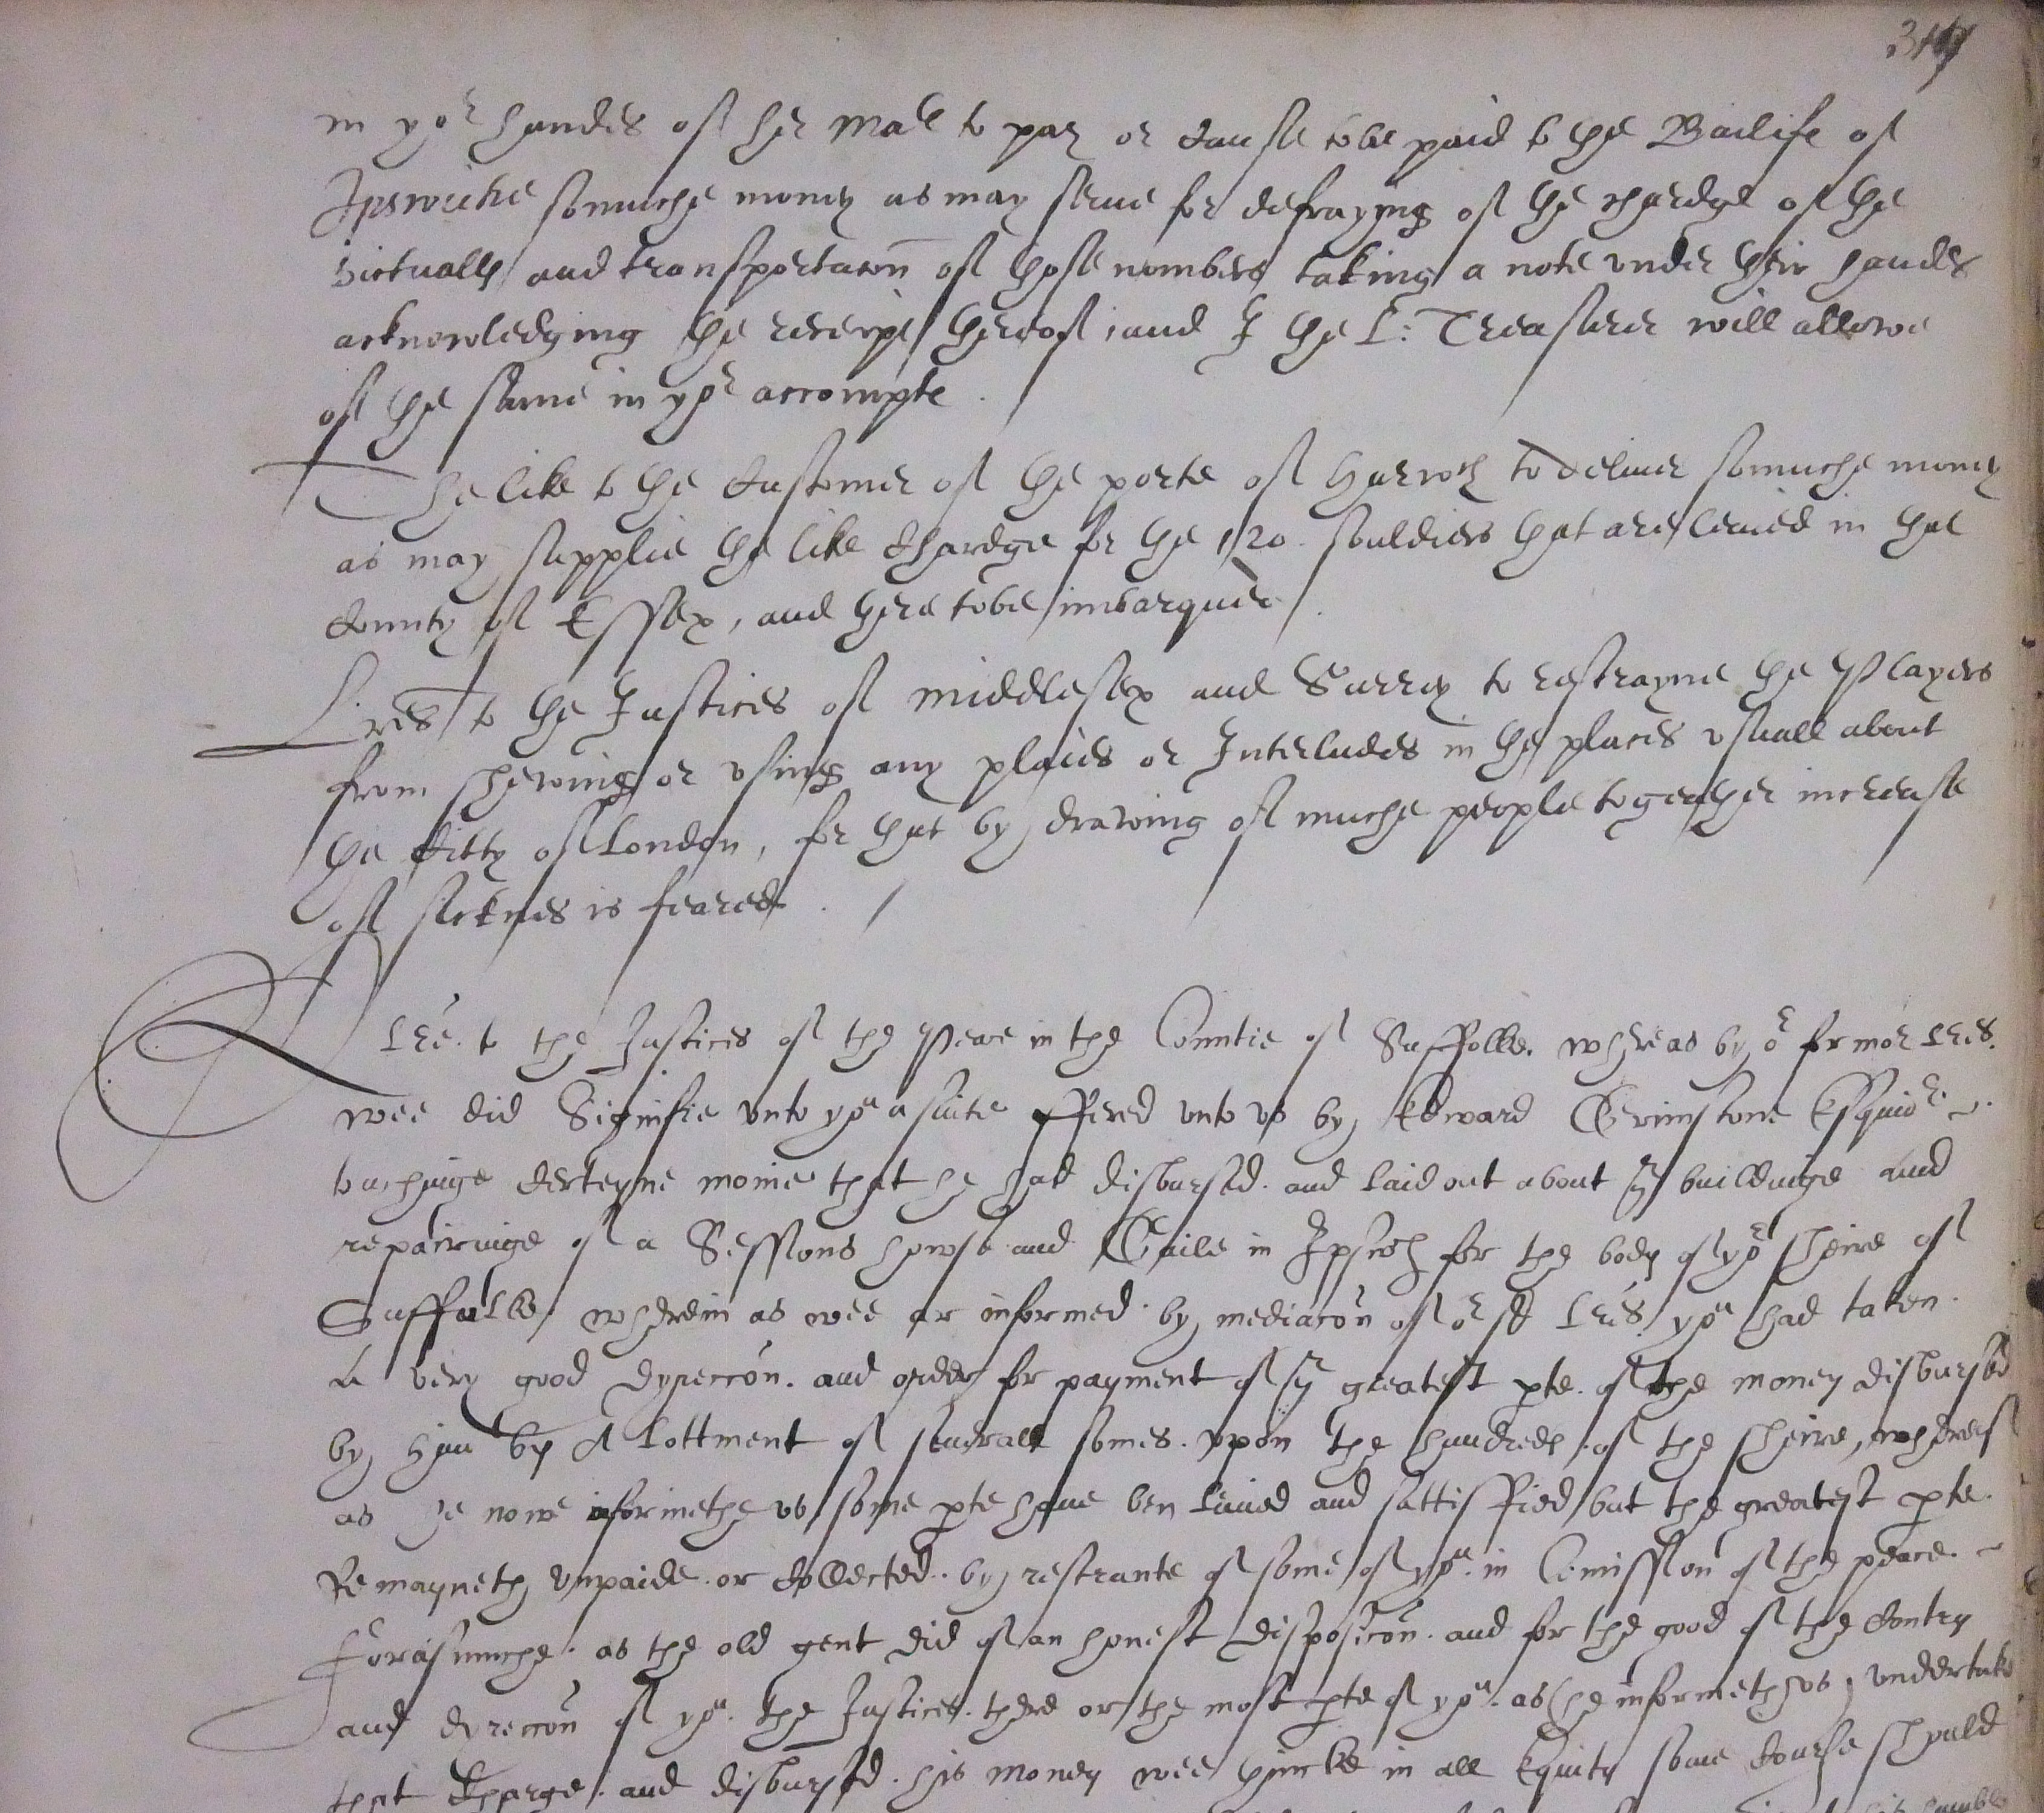 in yor handes of her Matie to pay or cause to be paid to the Bailife of
Ipswiche somuche money as may serve for defraying of the chardge of the
victualls and transportacon of those nombers taking a note under their handes
acknowledging the receipt thereof, and I the L: Treasurer will allowe
of the same in yor accompte.
The like to the Customer of the porte of Harwch to deliver somuche money
as may supplie the like chardge for the 120 souldiers that are levied in that
County of Essex, and there to be imbarqued.
Lres to the Justices of Middlesex and Surrey to restrayne the Players
from shewing or using any plaies or Interludes in the places usuall about
the Citty of London, for that by drawing of muche people togeather increase
of sicknes is feared.
A lre. to the Justices of the Peace in the Countie of Suffolke. whereas by or former lres.
wee did Signifie unto you a suite offered unto us by Edward Grimstone Esquior.
touchinge certeyne monie that he had disbursed. and laid out about ye buildinge and
repairinge of a Sessions howse and Gaile in Ipswch for the body of yor sheire of
Suffolke. wherein as wee ar informed. by mediacon of or sd lres. you had taken.
A very good dyreccon. and order for payment of ye greatest pte. of the money disbursed
by him by Alottment of severall somes. upon the hundreds of the sheire, whereof
as he nowe informethe us some pte have ben levied and sattisffied but the greatest pte.
Remayneth unpaide. or collected. by restrante of some of you. in Comission of the peace.
Forasmuche. as the old gent did of an honest disposicon. and for the good of the Contry
and dyreccon of you. the Justices. there or the most pte of you. as (he informeth us) undertake
that Charge. and disbursed. his money wee thincke in all Equity some Course should